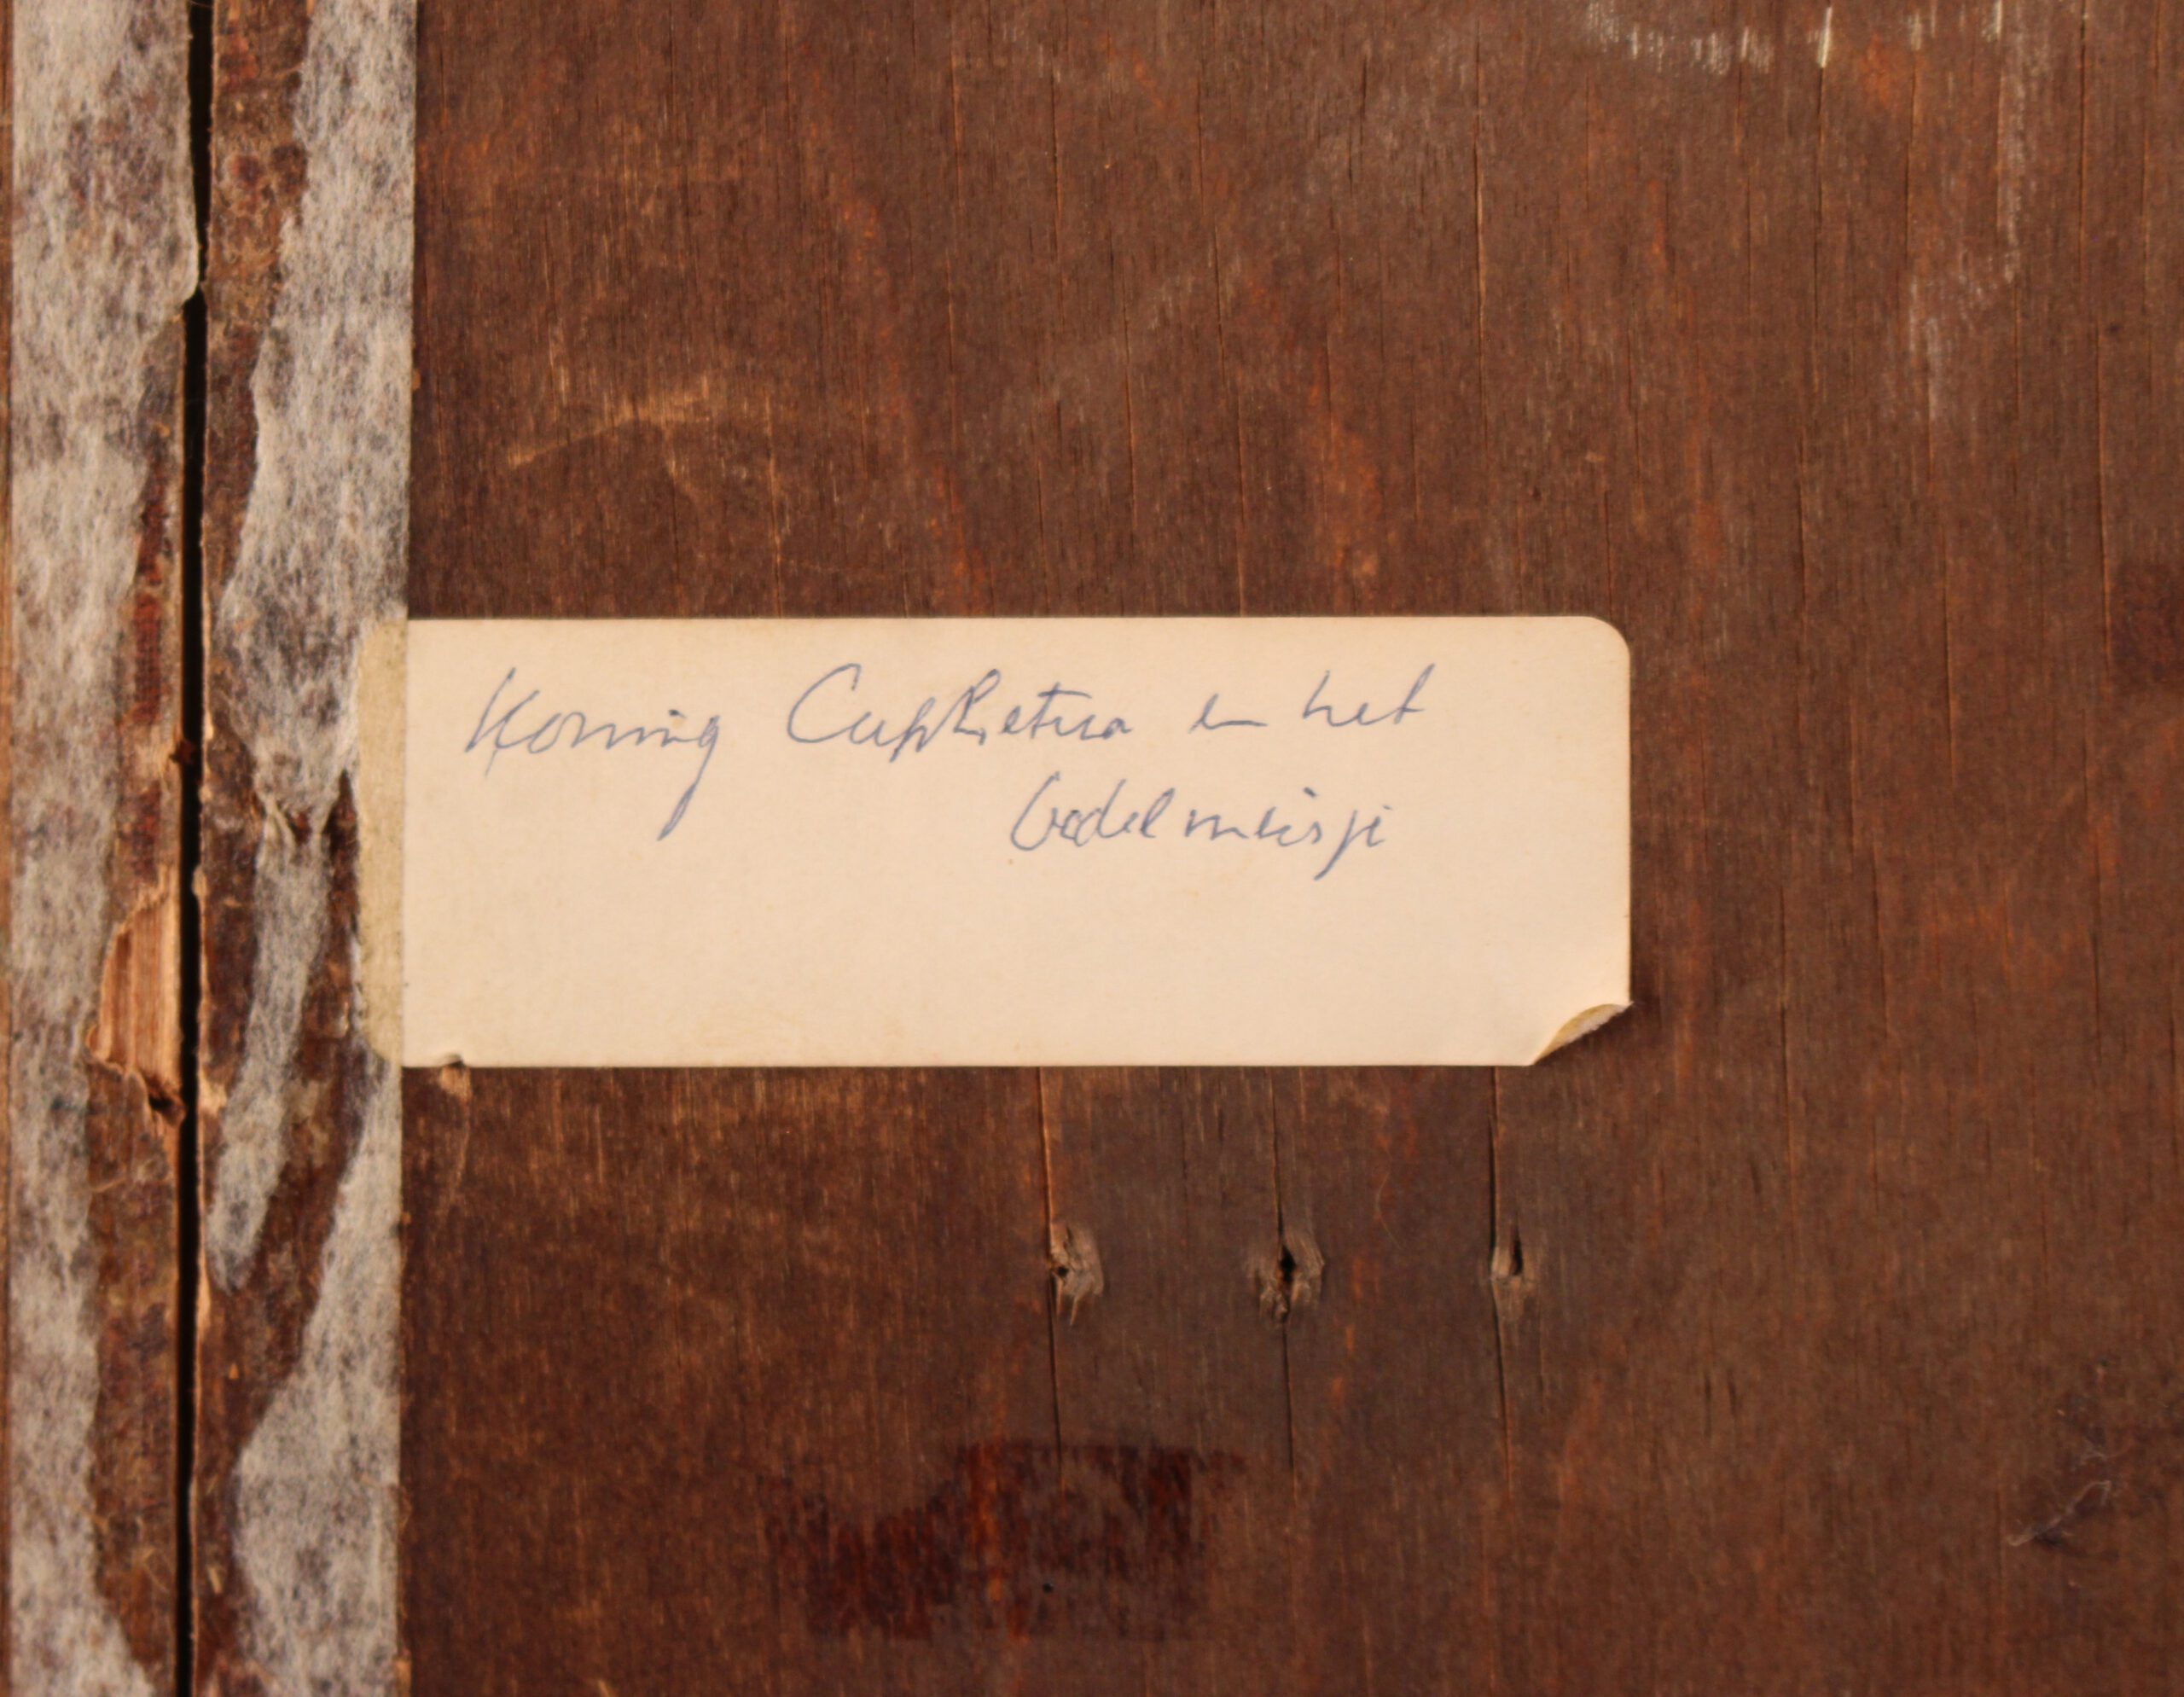 Koning Cuphetua en het
bedelmeisje